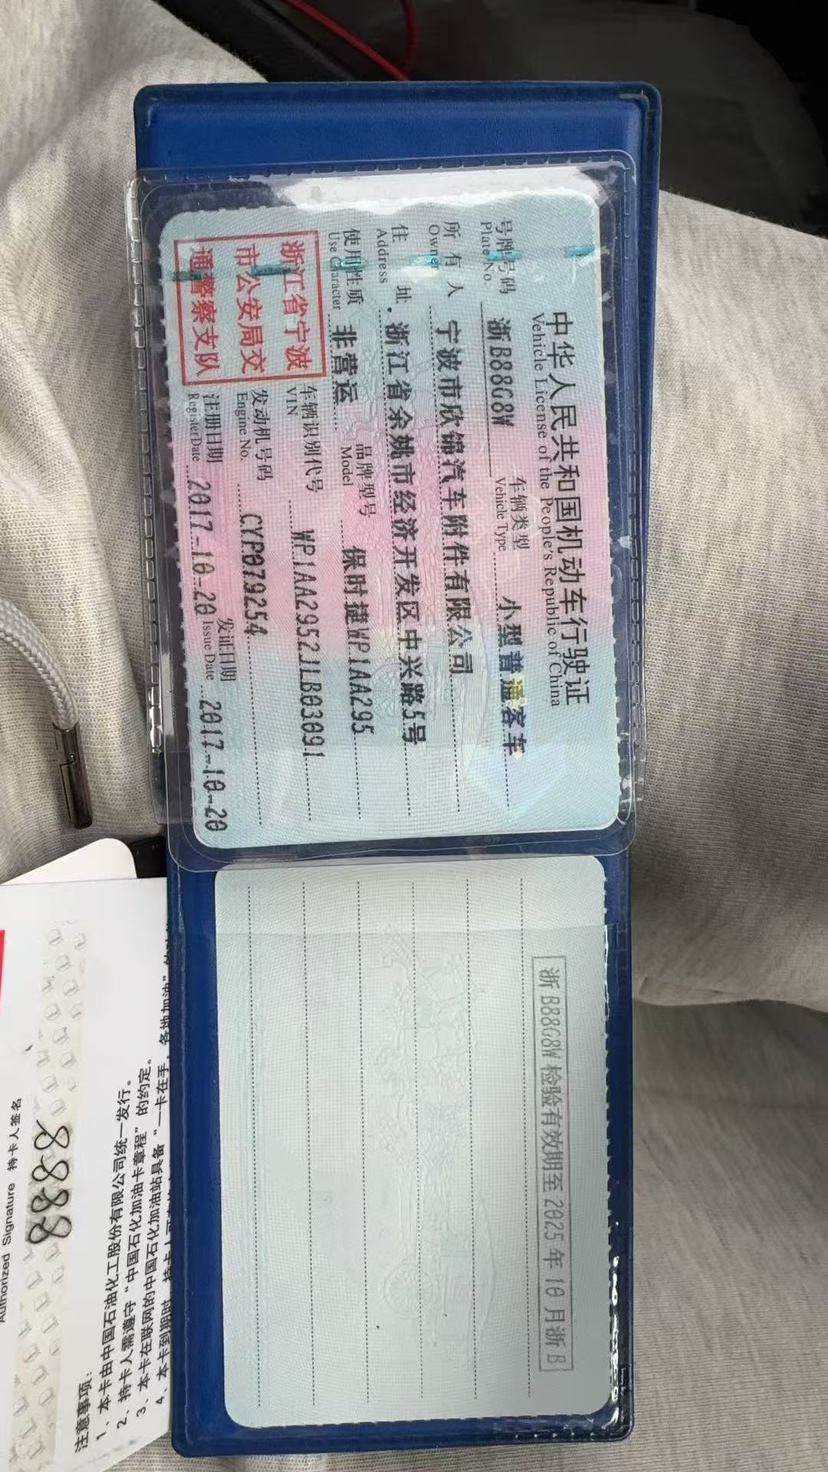 中华人民共和国机动车行驶证
Vehicle License of the People's Republic of China
号牌号码 浙B88G8W 车辆类型 小型普通客车
Plate No. Vehicle Type
所有人 宁波市欣锦汽车附件有限公司
Owner
住址 浙江省余姚市经济开发区中兴路5号
Address
使用性质 非营运 品牌型号 保时捷WP1AA295
Use Character Model
浙江省宁波
市公安局交
通警察支队
车辆识别代号 WP1AA2952JLB03091
VIN
发动机号码 CYP079254
Engine No.
注册日期 2017-10-20 发证日期 2017-10-20
Register Date Issue Date
浙B88G8W检验有效期至2025年10月浙B
Authorized Signature 持卡人签名
8888
注意事项：
1、本卡由中国石油化工股份有限公司统一发行。
2、持卡人需遵守“中国石化加油卡章程”的约定。
3、本卡在联网的中国石化加油站具备“一卡在手，各地加油”
4、本卡到期时